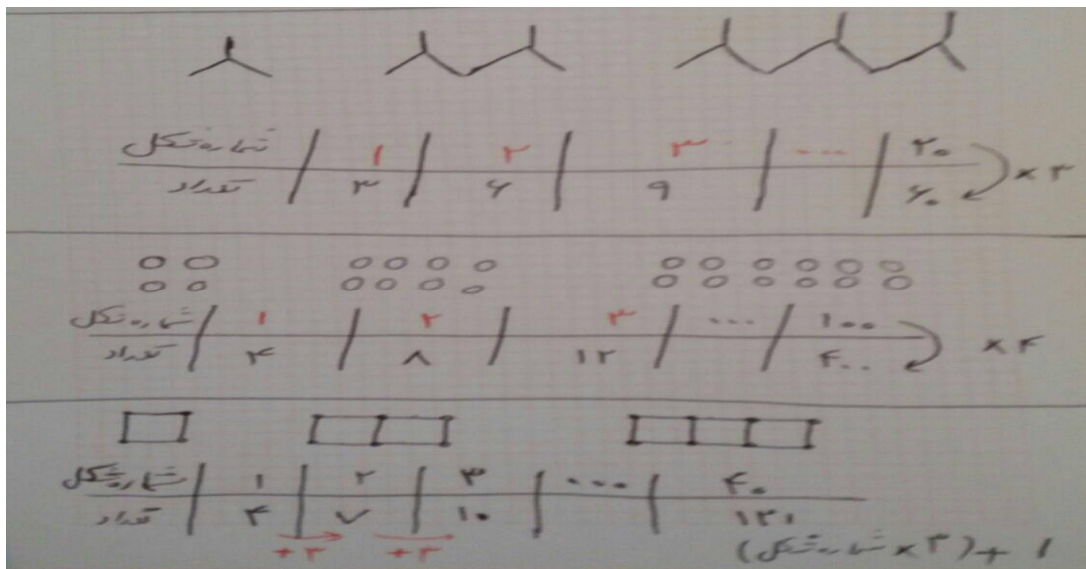 شماره شکل ۱ ۲ ۳ ... ۲۰
تعداد ۳ ۶ ۹ ۶۰
×۳
شماره شکل ۱ ۲ ۳ ... ۱۰۰
تعداد ۴ ۸ ۱۲ ۴۰۰
×۴
شماره شکل ۱ ۲ ۳ ... ۴۰
تعداد ۴ ۷ ۱۰ ۱۲۱
+۳ +۳ (شماره شکل × ۳) + ۱